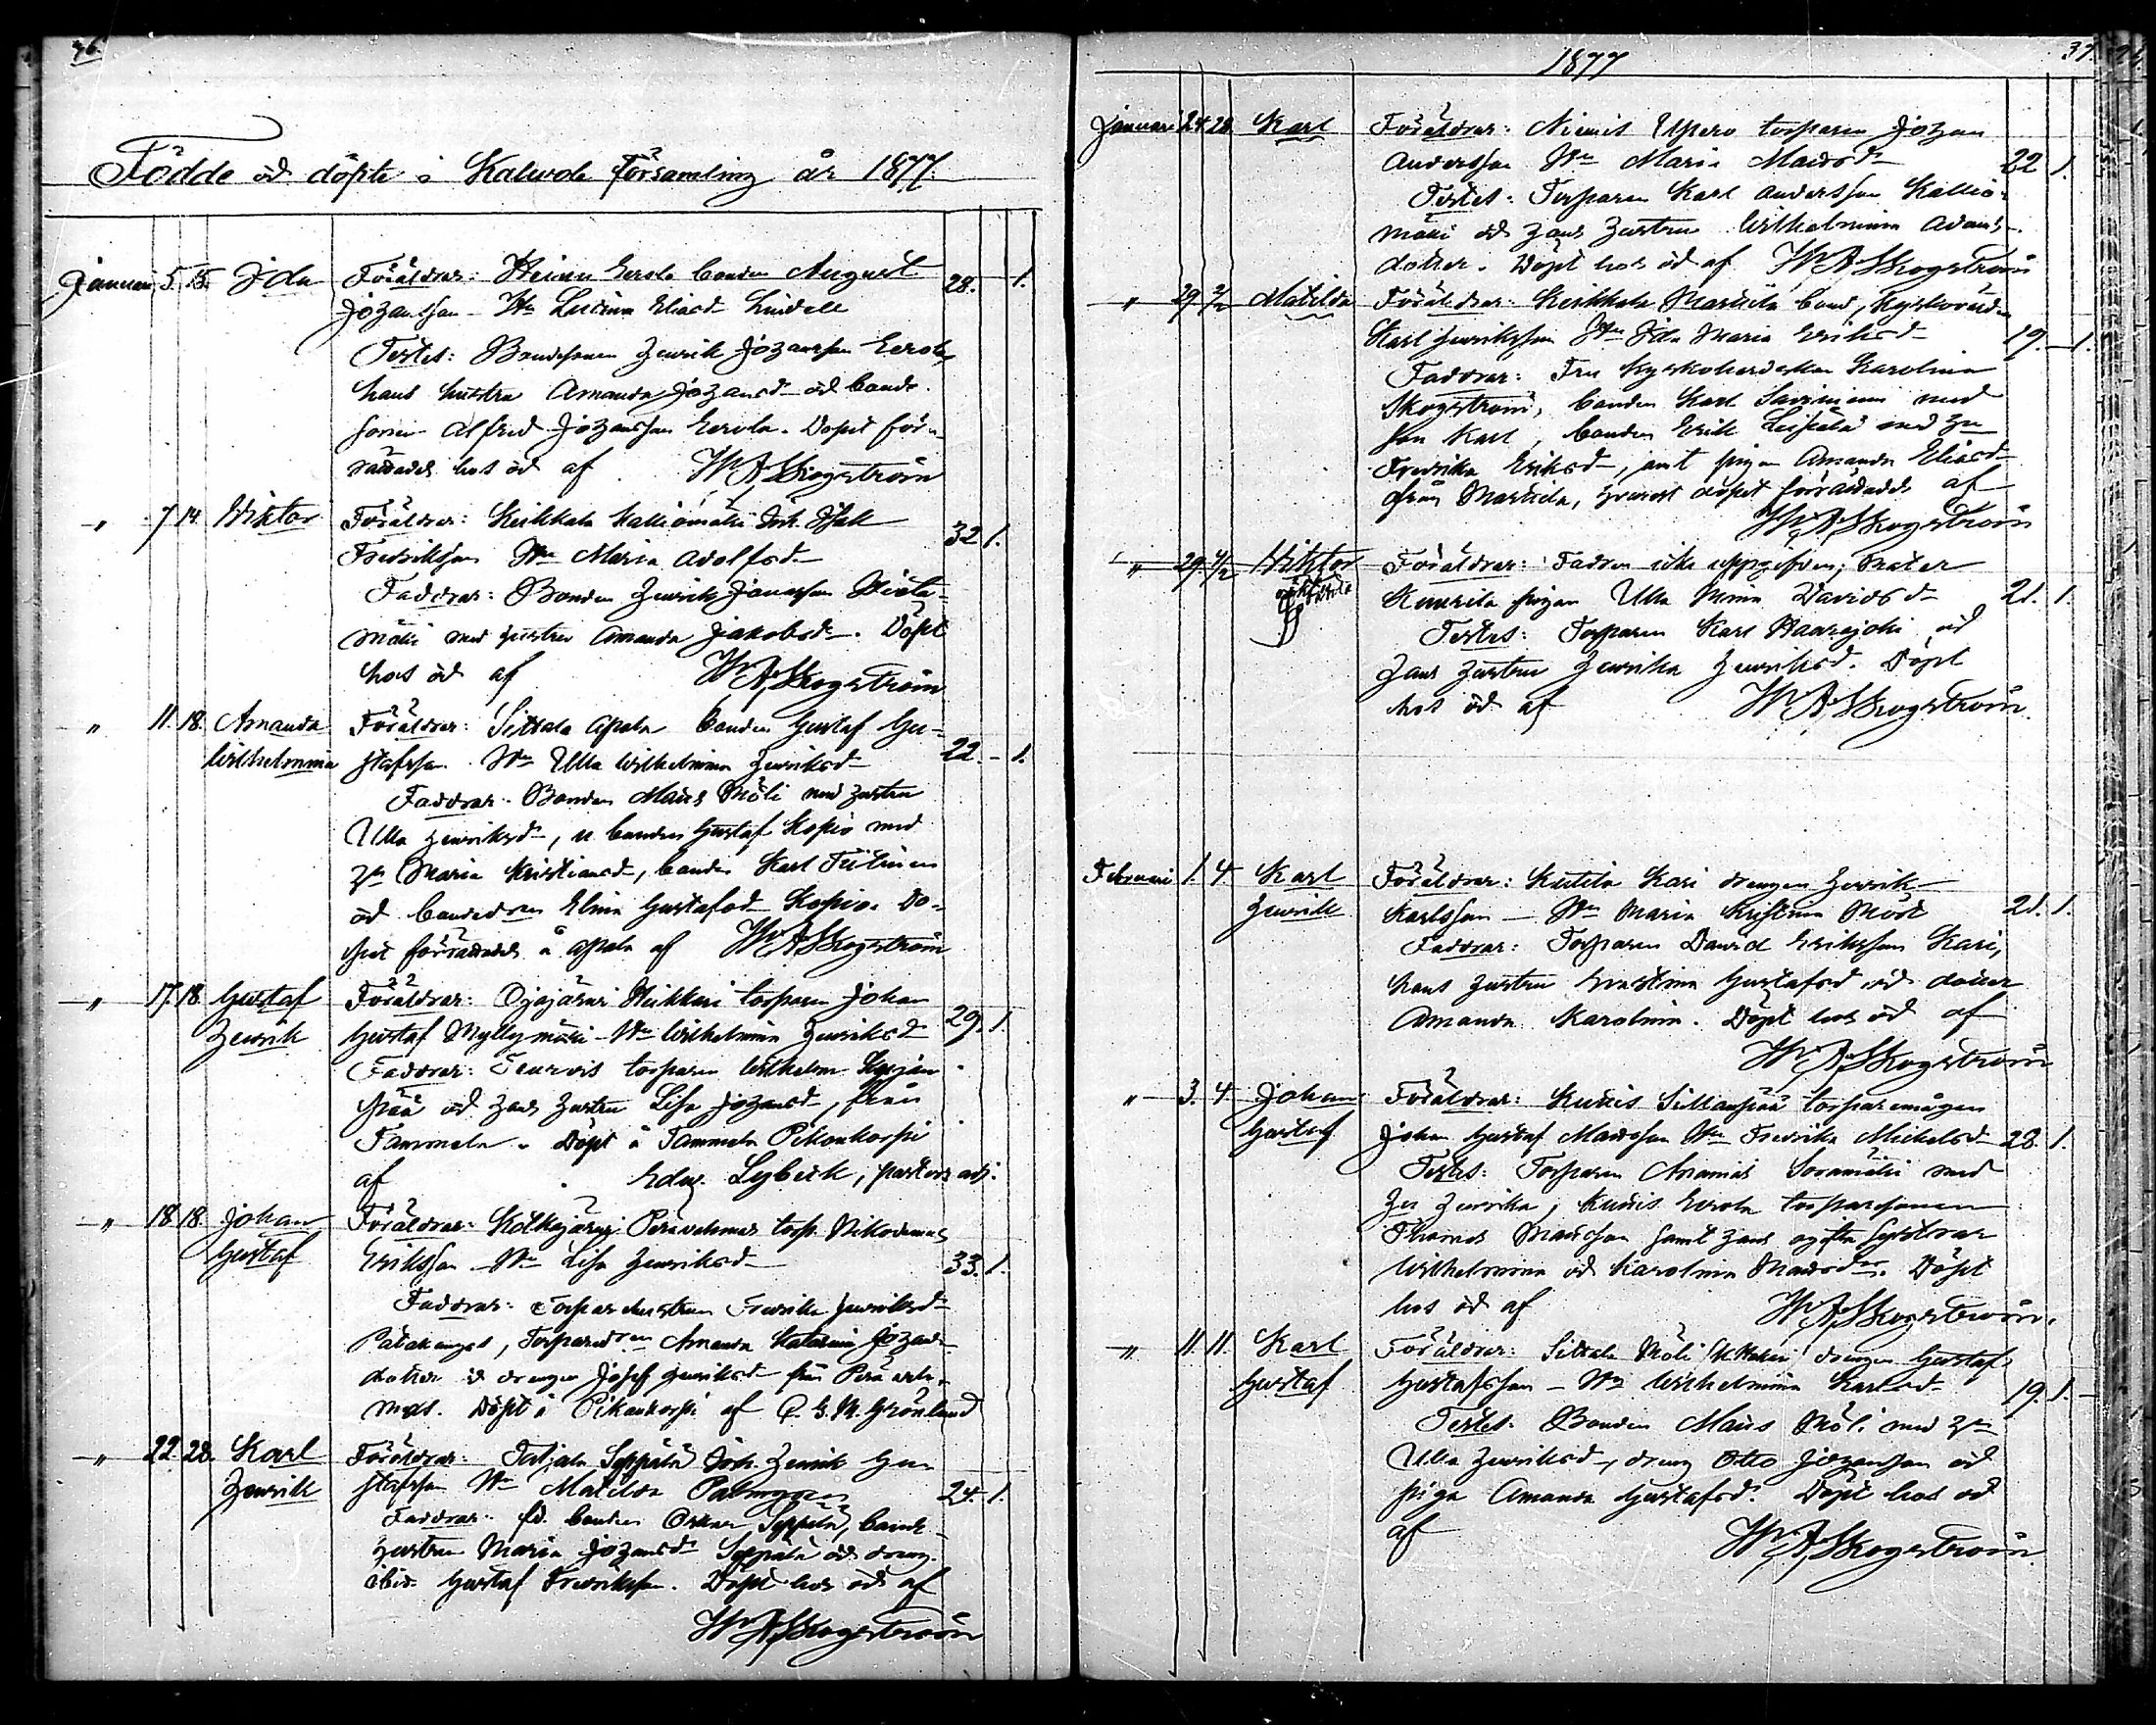 36.
Födde och döpte i Kalvola församling år 1877.
Januari 5. 15. Ida Föräldrar: Heinu Eerola bonden August 28. 1.
Johansson - Hu Lovisa Eliasd Lindell
Testes: Bondesonen Henrik Johansson Eerola,
hans hustru Amanda Johansd och bonde-
sonen Alfred Johansson Eerola. Dopet för-
rättades hos och af W A Skogström
" 7. 14. Wiktor Föräldrar: Keikkala Kalliomäki Isak 32. 1.
Fredriksson Hu Maria Adolfsd
Faddrar: Bonden Henrik Jonasson
mäki med hustru Amanda Jakobsd. Döpt
hos och af W A Skogström
" 11. 18. Amanda Föräldrar: Sittala Apala bonden Gustaf Gu-
Wilhelmina stafsson. Hu Ulla Wilhelmina Henriksd 22. 1.
Faddrar: Bonden Matts Möli med hustru
Ulla Henriksd, bonden Gustaf Kopio med
Hu Maria Kristiansd, bonden Karl
och bonded:en Elina Gustafsd Kopio. Do-
pet förrättades å Apala af W A Skogström
" 17. 18. Gustaf Föräldrar: Ojajärvi Heikkari torparen Johan
Henrik Gustaf Myllymäki - Hu Wilhelmina Henriksd 29. 1.
Faddrar: torparen Wilhelm
pää och hans hustru Lisa Johansd, från
Tammela. Döpt å Tammela Pikonkorpi
af Edw. Lybeck, pastors adj.
" 18. 18. Johan Föräldrar: Kotkajärvi torp. Nikodemus
Gustaf Eriksson Hu Lisa Henriksd 33. 1.
Faddrar: Torparehustrun Fredrika Henriksd
Patakangas, Torpared:en Amanda Katarina Johans-
dotter och drengen Josef Henriksd från
Döpt i Pikonkorpi af C. G. M. Grönlund
" 22. 28. Karl Föräldrar: Taljala Seppälä Henrik Gu-
Henrik stafsson Hu Matilda Palmgren 24. 1.
Faddrar: fd. bonden Oskar Seppälä, bonde-
hustrun Maria Johansd Seppälä och dreng
ibid. Gustaf Fredriksson. Döpt hos och af
W A Skogström
1877 37.
Januari 24. 28. Karl Föräldrar: Niemis Upero torparen Johan
Andersson Hu Maria Mattsd 22. 1.
Testes: Torparen Karl Andersson Kallio-
mäki och hans hustru Wilhelmina Adams-
dotter. Döpt hos och af W A Skogström
" 29. 2/2 Matilda Föräldrar: Keikkala Marttila bond, Kyrkovärden
Karl Henriksson Hu Ida Maria Eriksd 19. 1.
Faddrar: Fru Kyrkoherdeskan Karolina
Skogström, bonden Karl Saviniemi med
son Karl, bonden Erik med Hu
Fredrika Eriksd, samt pigan Amanda Eliasd
från Marttila, hvarest dopet förrättades af
W A Skogström
" 29. 4/2 Wiktor Föräldrar: Fadren icke uppgifven; Mater
oäkta Kuurila pigan Ulla Mina Davidsd 21. 1.
Testes: Torparen Karl Haarajoki och
hans hustru Henrika Henriksd. Döpt
hos och af W A Skogström
Februari 1. 4. Karl Föräldrar: Kutila Kari drengen Henrik
Henrik Karlsson - Hu Maria Kristina Möst 21. 1.
Faddrar: Torparen David Eriksson Kari,
hans hustru Gustafsd och dotter
Amanda Karolina. Döpt hos och af
W A Skogström
" 3. 4. Johan Föräldrar: Kuttis Sillanpää torparemågen
Gustaf Johan Gustaf Mattsson Hu Fredrika Mickelsd 28. 1.
Testes: Torparen Ananias med
Hu Henrika, Kuttis Eerola torparesonen
Thomas Mattsson samt hans ogifta systrar
Wilhelmina och Karolina Mattsd:r. Döpt
hos och af W A Skogström.
" 11. 11. Karl Föräldrar: Sittala Möli drengen Gustaf
Gustaf Gustafsson - Hu Wilhelmina Karlsd 19. 1.
Testes: Bonden Matts Möli med Hu
Ulla Henriksd, dreng Otto Johansson och
piga Amanda Gustafsd. Döpt hos och
af W A Skogström